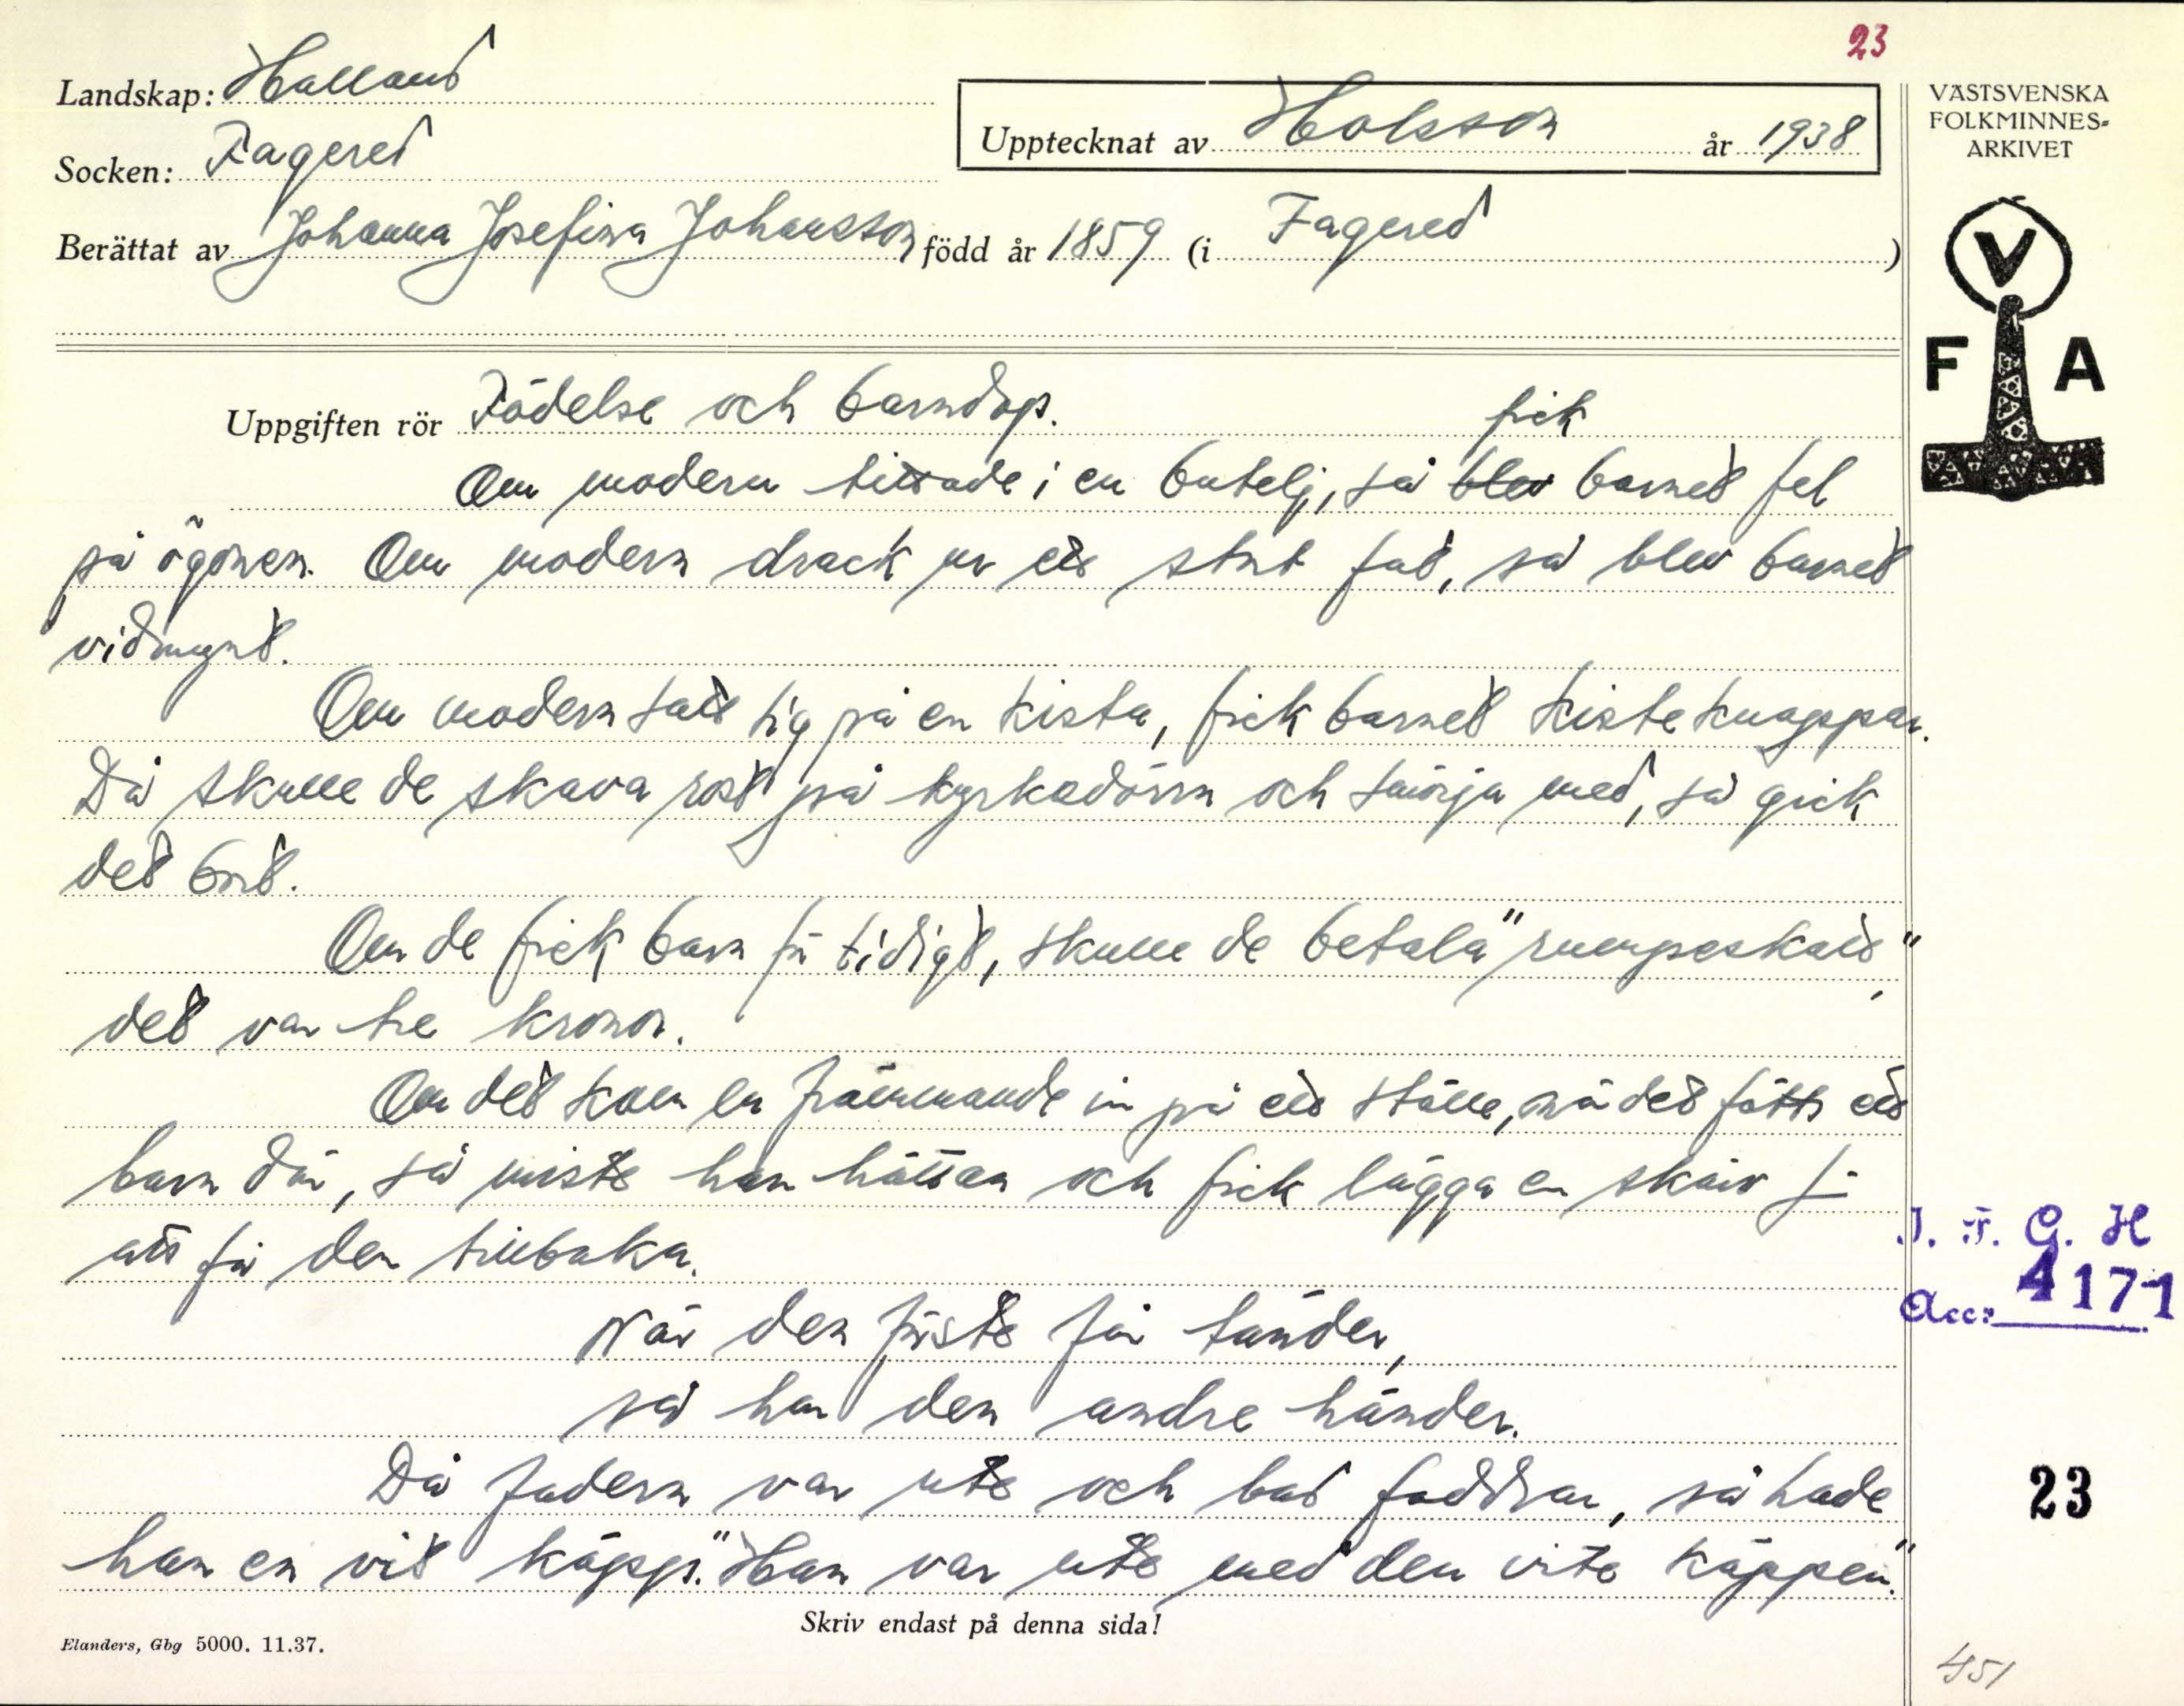 23
Landskap: Halland
Socken: Fagered
Upptecknat av Holsson år 1938
Berättat av Johanna Josefina Johansson född år 1859 (i Fagered )
VÄSTSVENSKA
FOLKMINNES-
ARKIVET
V
F A
Uppgiften rör Födelse och barndop.
fick
Om modern tittade i en butelj, så blev barnet fel
på ögonen. Om modern drack ur ett stort fat, så blev barnet
vidmynt.
Om modern satt sig på en kista, fick barnet kisteknappar.
Då skulle de skava rost på kyrkodörrn och smörja med, så gick
det bort.
Om de fick barn för tidigt, skulle de betala "rumpeskatt",
det var tre kronor.
Om det kom en främmande in på ett ställe, när det fötts ett
barn där, så miste han hättan och fick lägga en skärv för
att få den tillbaka.
När den förste får tänder,
så har den andre händer.
Då fadern var ute och bad faddrar, så hade
han en vit käpp. "Han var ute med den vite käppen."
Skriv endast på denna sida!
Elanders, Gbg 5000. 11.37.
I. F. G. H
Acc: 4171
23
451